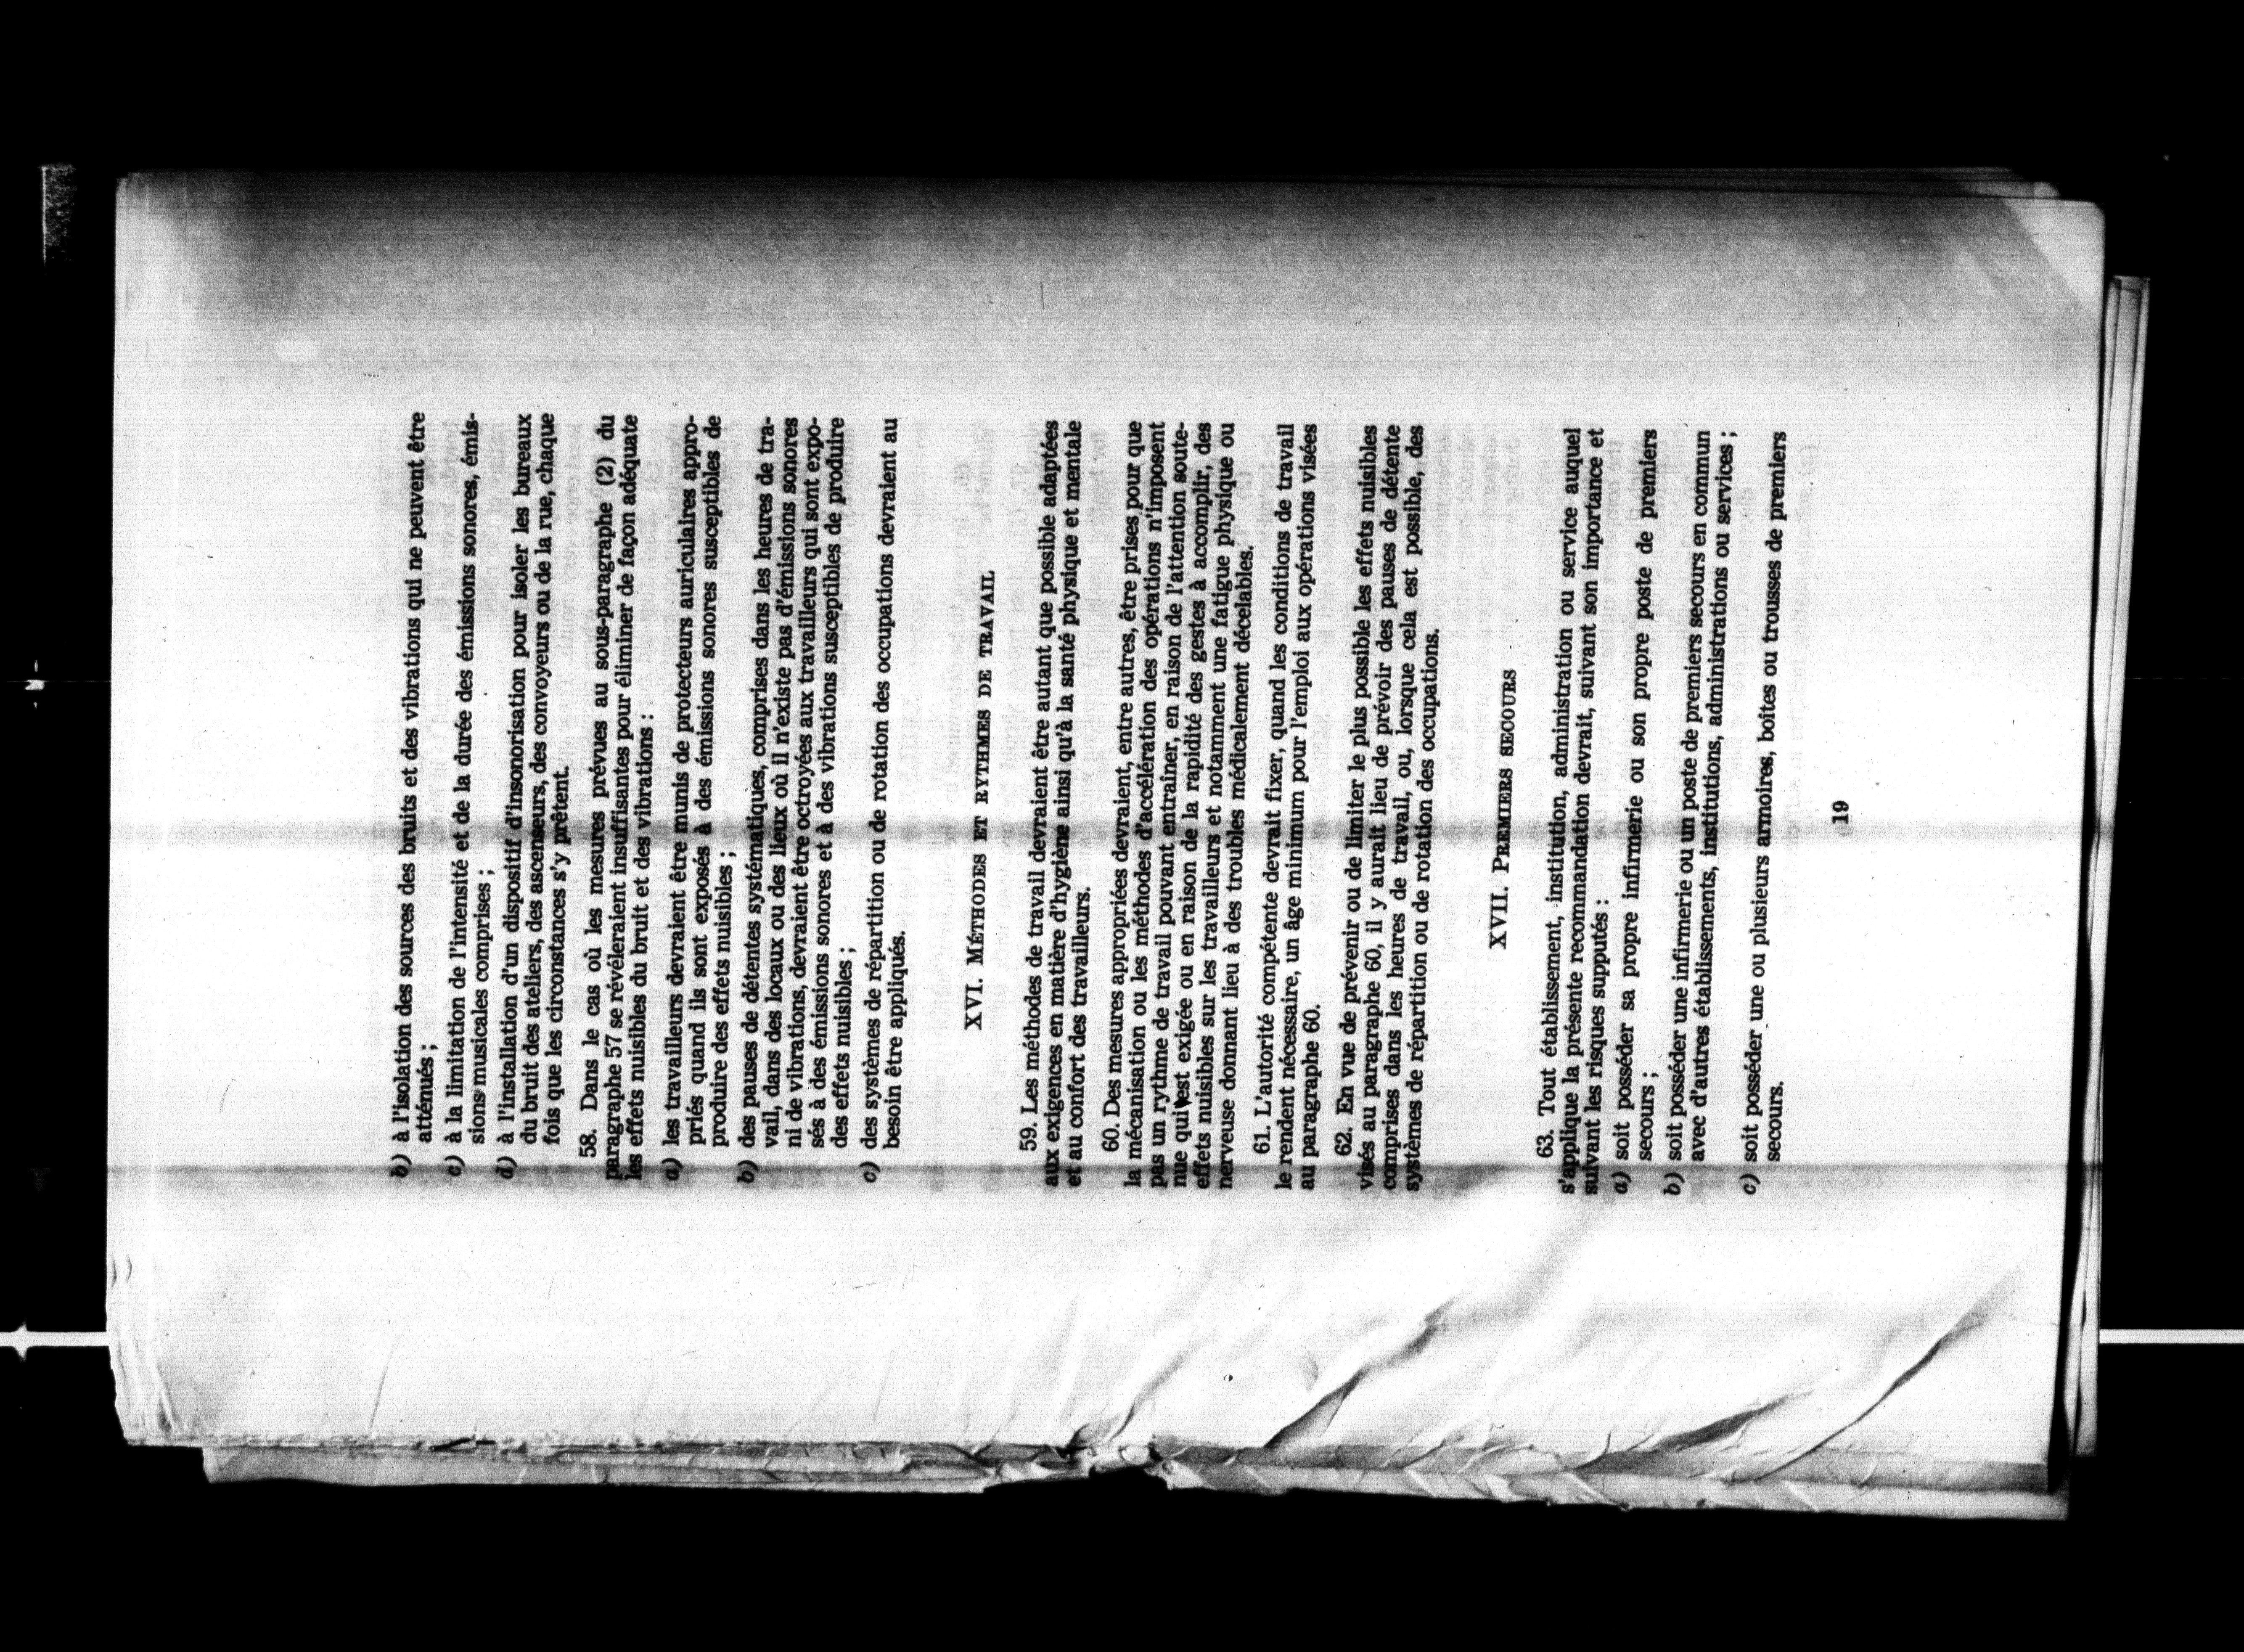 b) à l'isolation des sources des bruits et des vibrations qui ne peuvent être
atténués ;
c) à la limitation de l'intensité et de la durée des émissions sonores, émis-
sions musicales comprises ;
d) à l'installation d'un dispositif d'insonorisation pour isoler les bureaux
du bruit des ateliers, des ascenseurs, des convoyeurs ou de la rue, chaque
fois que les circonstances s'y prêtent.
58. Dans le cas où les mesures prévues au sous-paragraphe (2) du
paragraphe 57 se révèleraient insuffisantes pour éliminer de façon adéquate
les effets nuisibles du bruit et des vibrations :
a) les travailleurs devraient être munis de protecteurs auriculaires appro-
priés quand ils sont exposés à des émissions sonores susceptibles de
produire des effets nuisibles ;
b) des pauses de détentes systématiques, comprises dans les heures de tra-
vail, dans des locaux ou des lieux où il n'existe pas d'émissions sonores
ni de vibrations, devraient être octroyées aux travailleurs qui sont expo-
sés à des émissions sonores et à des vibrations susceptibles de produire
des effets nuisibles ;
c) des systèmes de répartition ou de rotation des occupations devraient au
besoin être appliqués.
XVI. MÉTHODES ET RYTHMES DE TRAVAIL
59. Les méthodes de travail devraient être autant que possible adaptées
aux exigences en matière d'hygiène ainsi qu'à la santé physique et mentale
et au confort des travailleurs.
60. Des mesures appropriées devraient, entre autres, être prises pour que
la mécanisation ou les méthodes d'accélération des opérations n'imposent
pas un rythme de travail pouvant entraîner, en raison de l'attention soute-
nue qui est exigée ou en raison de la rapidité des gestes à accomplir, des
effets nuisibles sur les travailleurs et notamment une fatigue physique ou
nerveuse donnant lieu à des troubles médicalement décelables.
61. L'autorité compétente devrait fixer, quand les conditions de travail
le rendent nécessaire, un âge minimum pour l'emploi aux opérations visées
au paragraphe 60.
62. En vue de prévenir ou de limiter le plus possible les effets nuisibles
visés au paragraphe 60, il y aurait lieu de prévoir des pauses de détente
comprises dans les heures de travail, ou, lorsque cela est possible, des
systèmes de répartition ou de rotation des occupations.
XVII. PREMIERS SECOURS
63. Tout établissement, institution, administration ou service auquel
s'applique la présente recommandation devrait, suivant son importance et
suivant les risques supputés :
a) soit posséder sa propre infirmerie ou son propre poste de premiers
secours ;
b) soit posséder une infirmerie ou un poste de premiers secours en commun
avec d'autres établissements, institutions, administrations ou services ;
c) soit posséder une ou plusieurs armoires, boîtes ou trousses de premiers
secours.
19